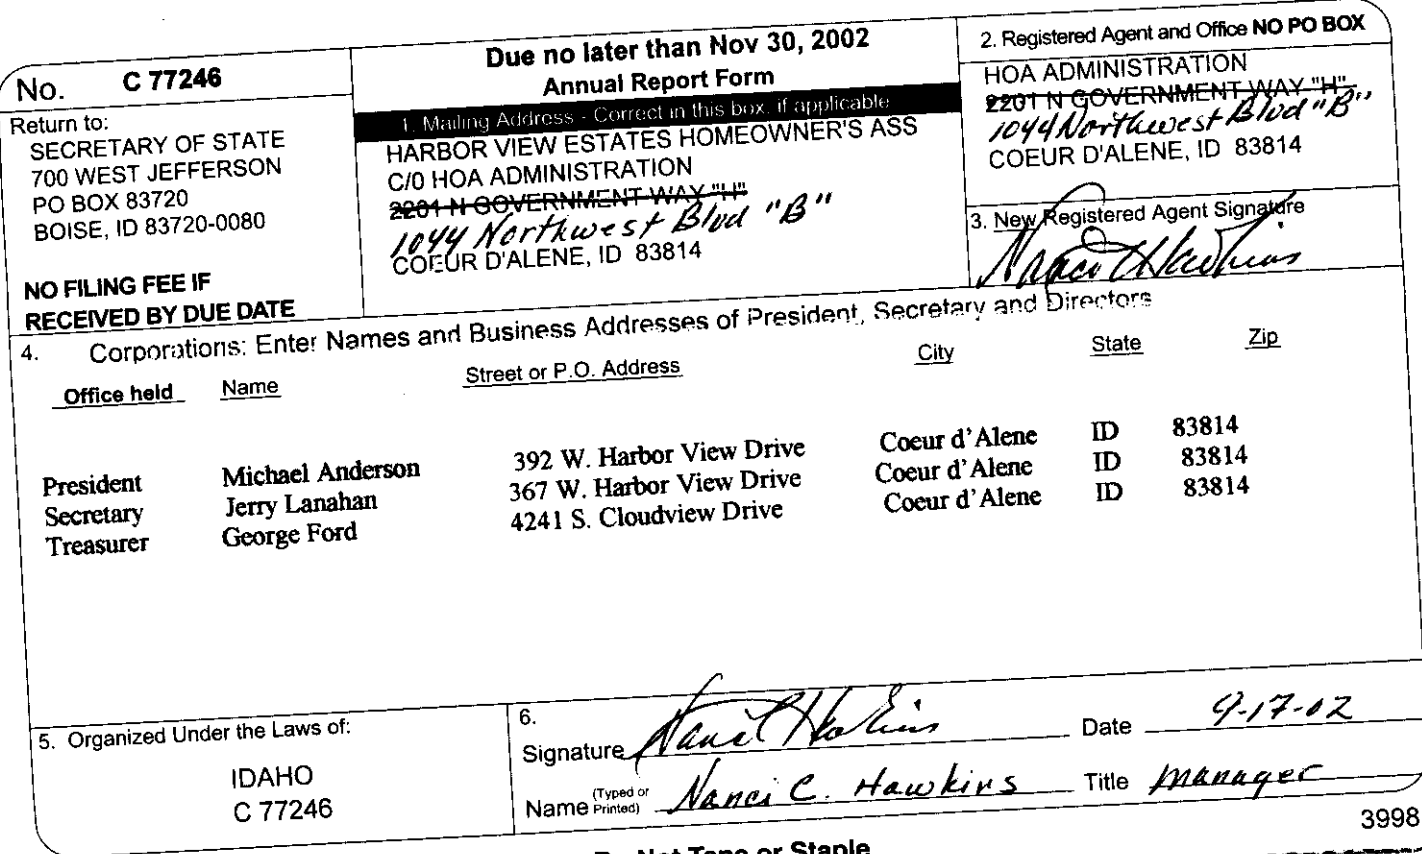 No. C 77246
Return to:
SECRETARY OF STATE
700 WEST JEFFERSON
PO BOX 83720
BOISE, ID 83720-0080
NO FILING FEE IF
RECEIVED BY DUE DATE
Due no later than Nov 30, 2002
Annual Report Form
1. Mailing Address - Correct in this box, if applicable
HARBOR VIEW ESTATES HOMEOWNER'S ASS
C/0 HOA ADMINISTRATION
2201 N GOVERNMENT WAY "H"
1044 Northwest Blvd "B"
COEUR D'ALENE, ID 83814
2. Registered Agent and Office NO PO BOX
HOA ADMINISTRATION
2201 N GOVERNMENT WAY "H"
1044 Northwest Blvd "B"
COEUR D'ALENE, ID 83814
3. New Registered Agent Signature
Nanci C Hawkins
4. Corporations: Enter Names and Business Addresses of President, Secretary and Directors
Office held Name Street or P.O. Address City State Zip
President Michael Anderson 392 W. Harbor View Drive Coeur d'Alene ID 83814
Secretary Jerry Lanahan 367 W. Harbor View Drive Coeur d'Alene ID 83814
Treasurer George Ford 4241 S. Cloudview Drive Coeur d'Alene ID 83814
5. Organized Under the Laws of:
IDAHO
C 77246
6.
Signature Nanci C Hawkins Date 9-17-02
Name (Typed or Printed) Nanci C. Hawkins Title Manager
3998
Not Tape or Staple